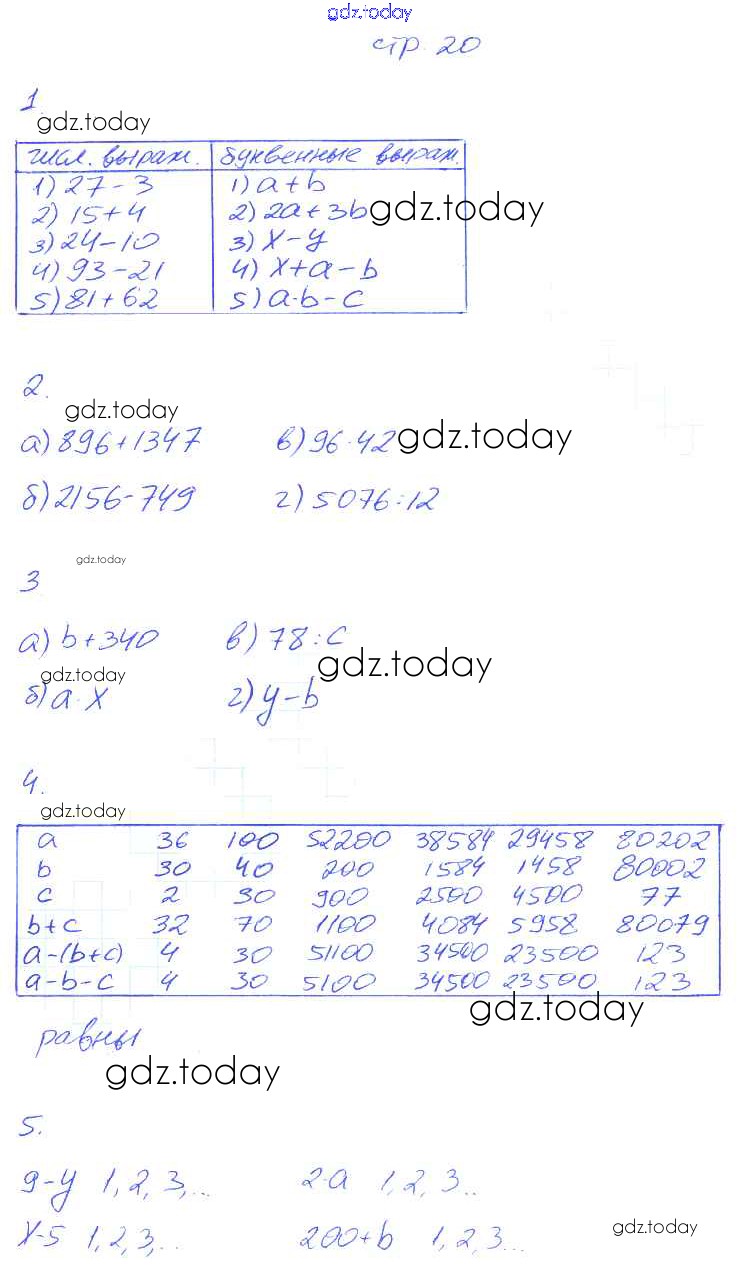 gdz.today
стр. 20
1.
gdz.today
числ. выраж. буквенные выраж.
1) 27-3 1) a+b
2) 15+4 2) 2a+3b gdz.today
3) 24-10 3) x-y
4) 93-21 4) x+a-b
5) 81+62 5) a·b-c
2.
gdz.today
а) 896+1347 в) 96·42 gdz.today
б) 2156-749 г) 5076:12
gdz.today
3
а) b+340 в) 78:c
gdz.today gdz.today
б) a·x г) y-b
4.
gdz.today
a 36 100 52200 38584 29458 80202
b 30 40 200 1584 1458 80002
c 2 30 900 2500 4500 77
b+c 32 70 1100 4084 5958 80079
a-(b+c) 4 30 51100 34500 23500 123
a-b-c 4 30 5100 34500 23500 123
gdz.today
равны
gdz.today
5.
9-y 1,2,3,... 2·a 1,2,3..
x-5 1,2,3,.. 200+b 1,2,3...
gdz.today